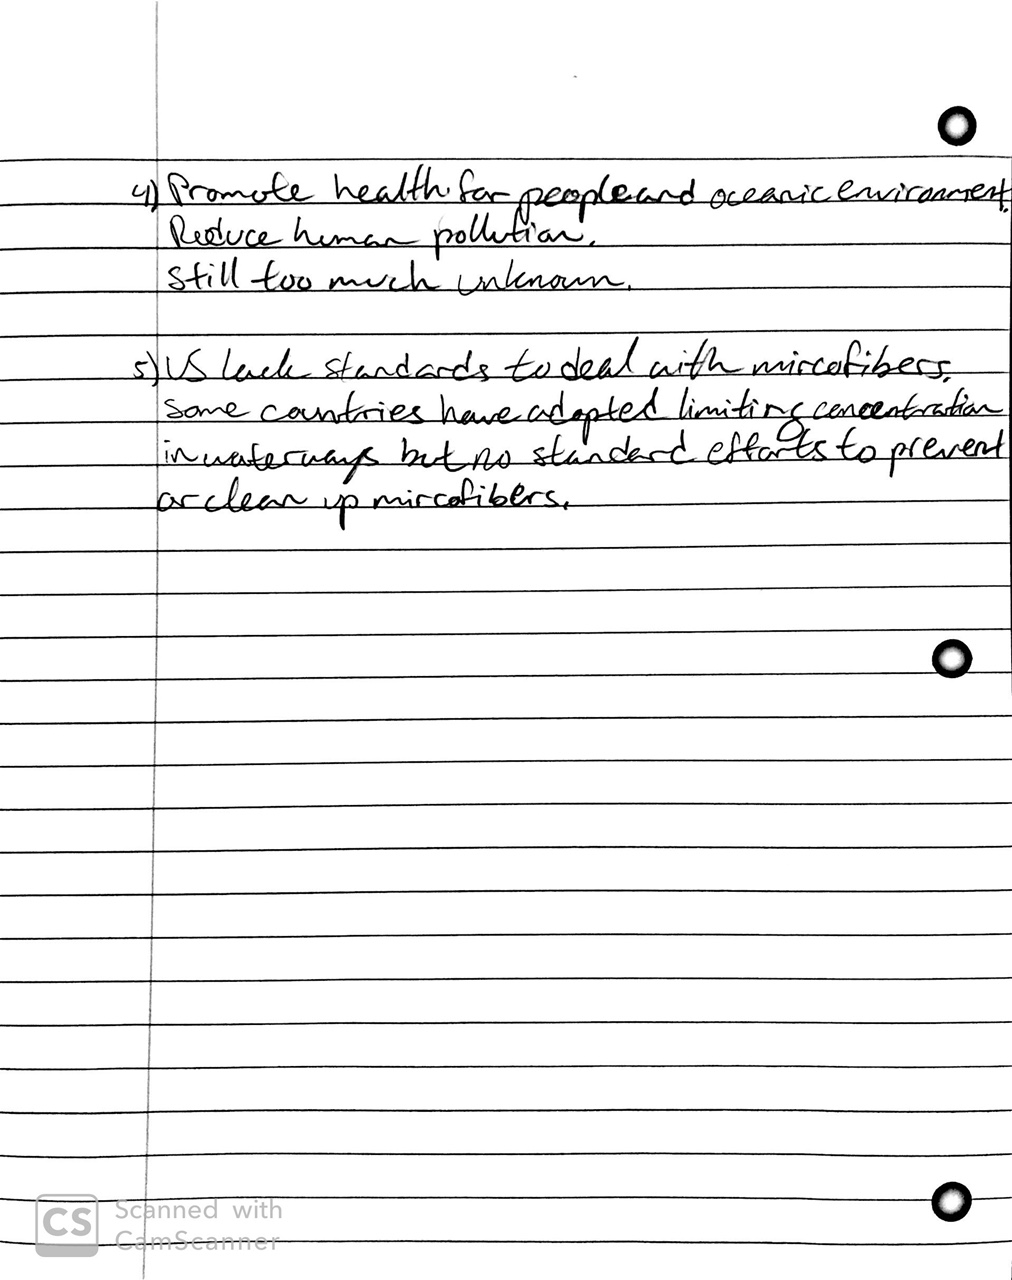 4) Promote health for people and oceanic environment.
Reduce human pollution.
Still too much unknown.
5) US lack standards to deal with mircofibers.
Some countries have adopted limiting concentration
in waterways but no standard efforts to prevent
or clean up mircofibers.
CS Scanned with
CamScanner